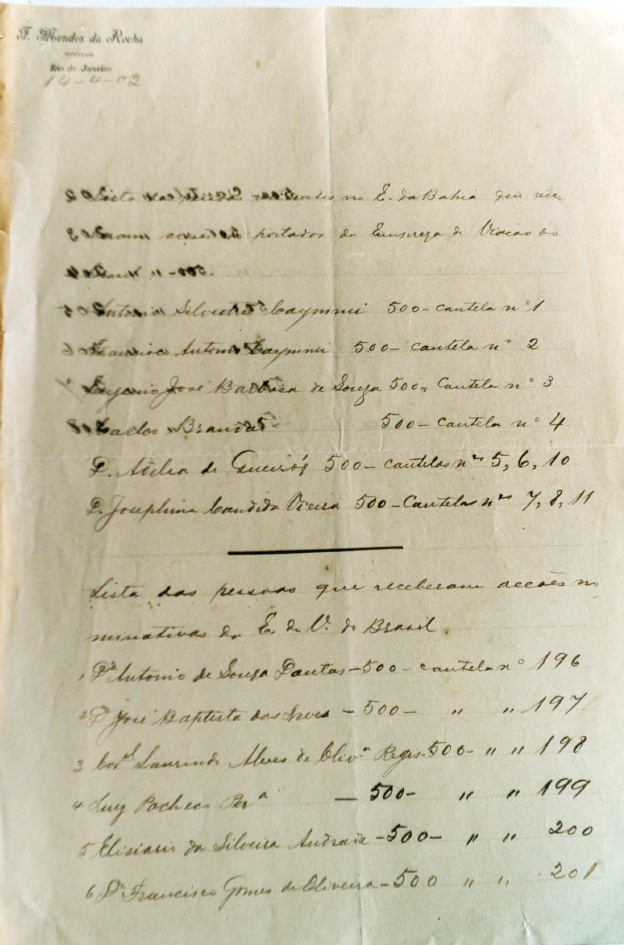 F. Mendes da Rocha
Rio de Janeiro
14-4-02
Lista no E. da Bahia que rece
portador da Empreza de Viação do
Antonio Silvestre Caymmi 500- cautela nº 1
Francisco Antonio Caymmi 500- cautela nº 2
Eugenio José Barbosa de Souza 500= Cautela nº 3
Carlos Brandão 500- cautela nº 4
D. Adelia de Queirós 500- cautelas nos 5, 6, 10
D. Josephina Candida Vieira 500- Cautelas nos 7, 8, 11
Lista das pessoas que receberam acções no
minativas da E. de V. do Brasil.
1 Dr Antonio de Souza Dantas -500- cautela nº 196
2 D José Baptista das Neves -500- " " 197
3 Corel Laurindo Alves de Olivra Regis-500- " " 198
4 Luiz Pacheco Pera -500- " " 199
5 Elisiario da Silveira Andrade -500- " " 200
6 Dr Francisco Gomes de Oliveira -500 " " 201